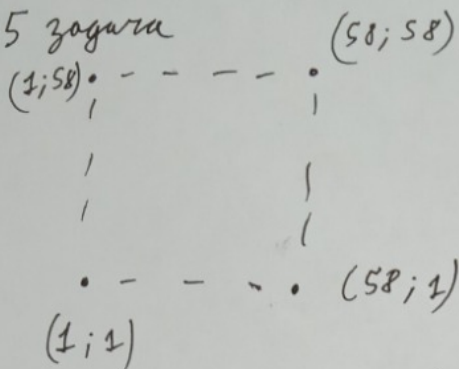 5 задача
(58; 58)
(1; 58)
(58; 1)
(1; 1)